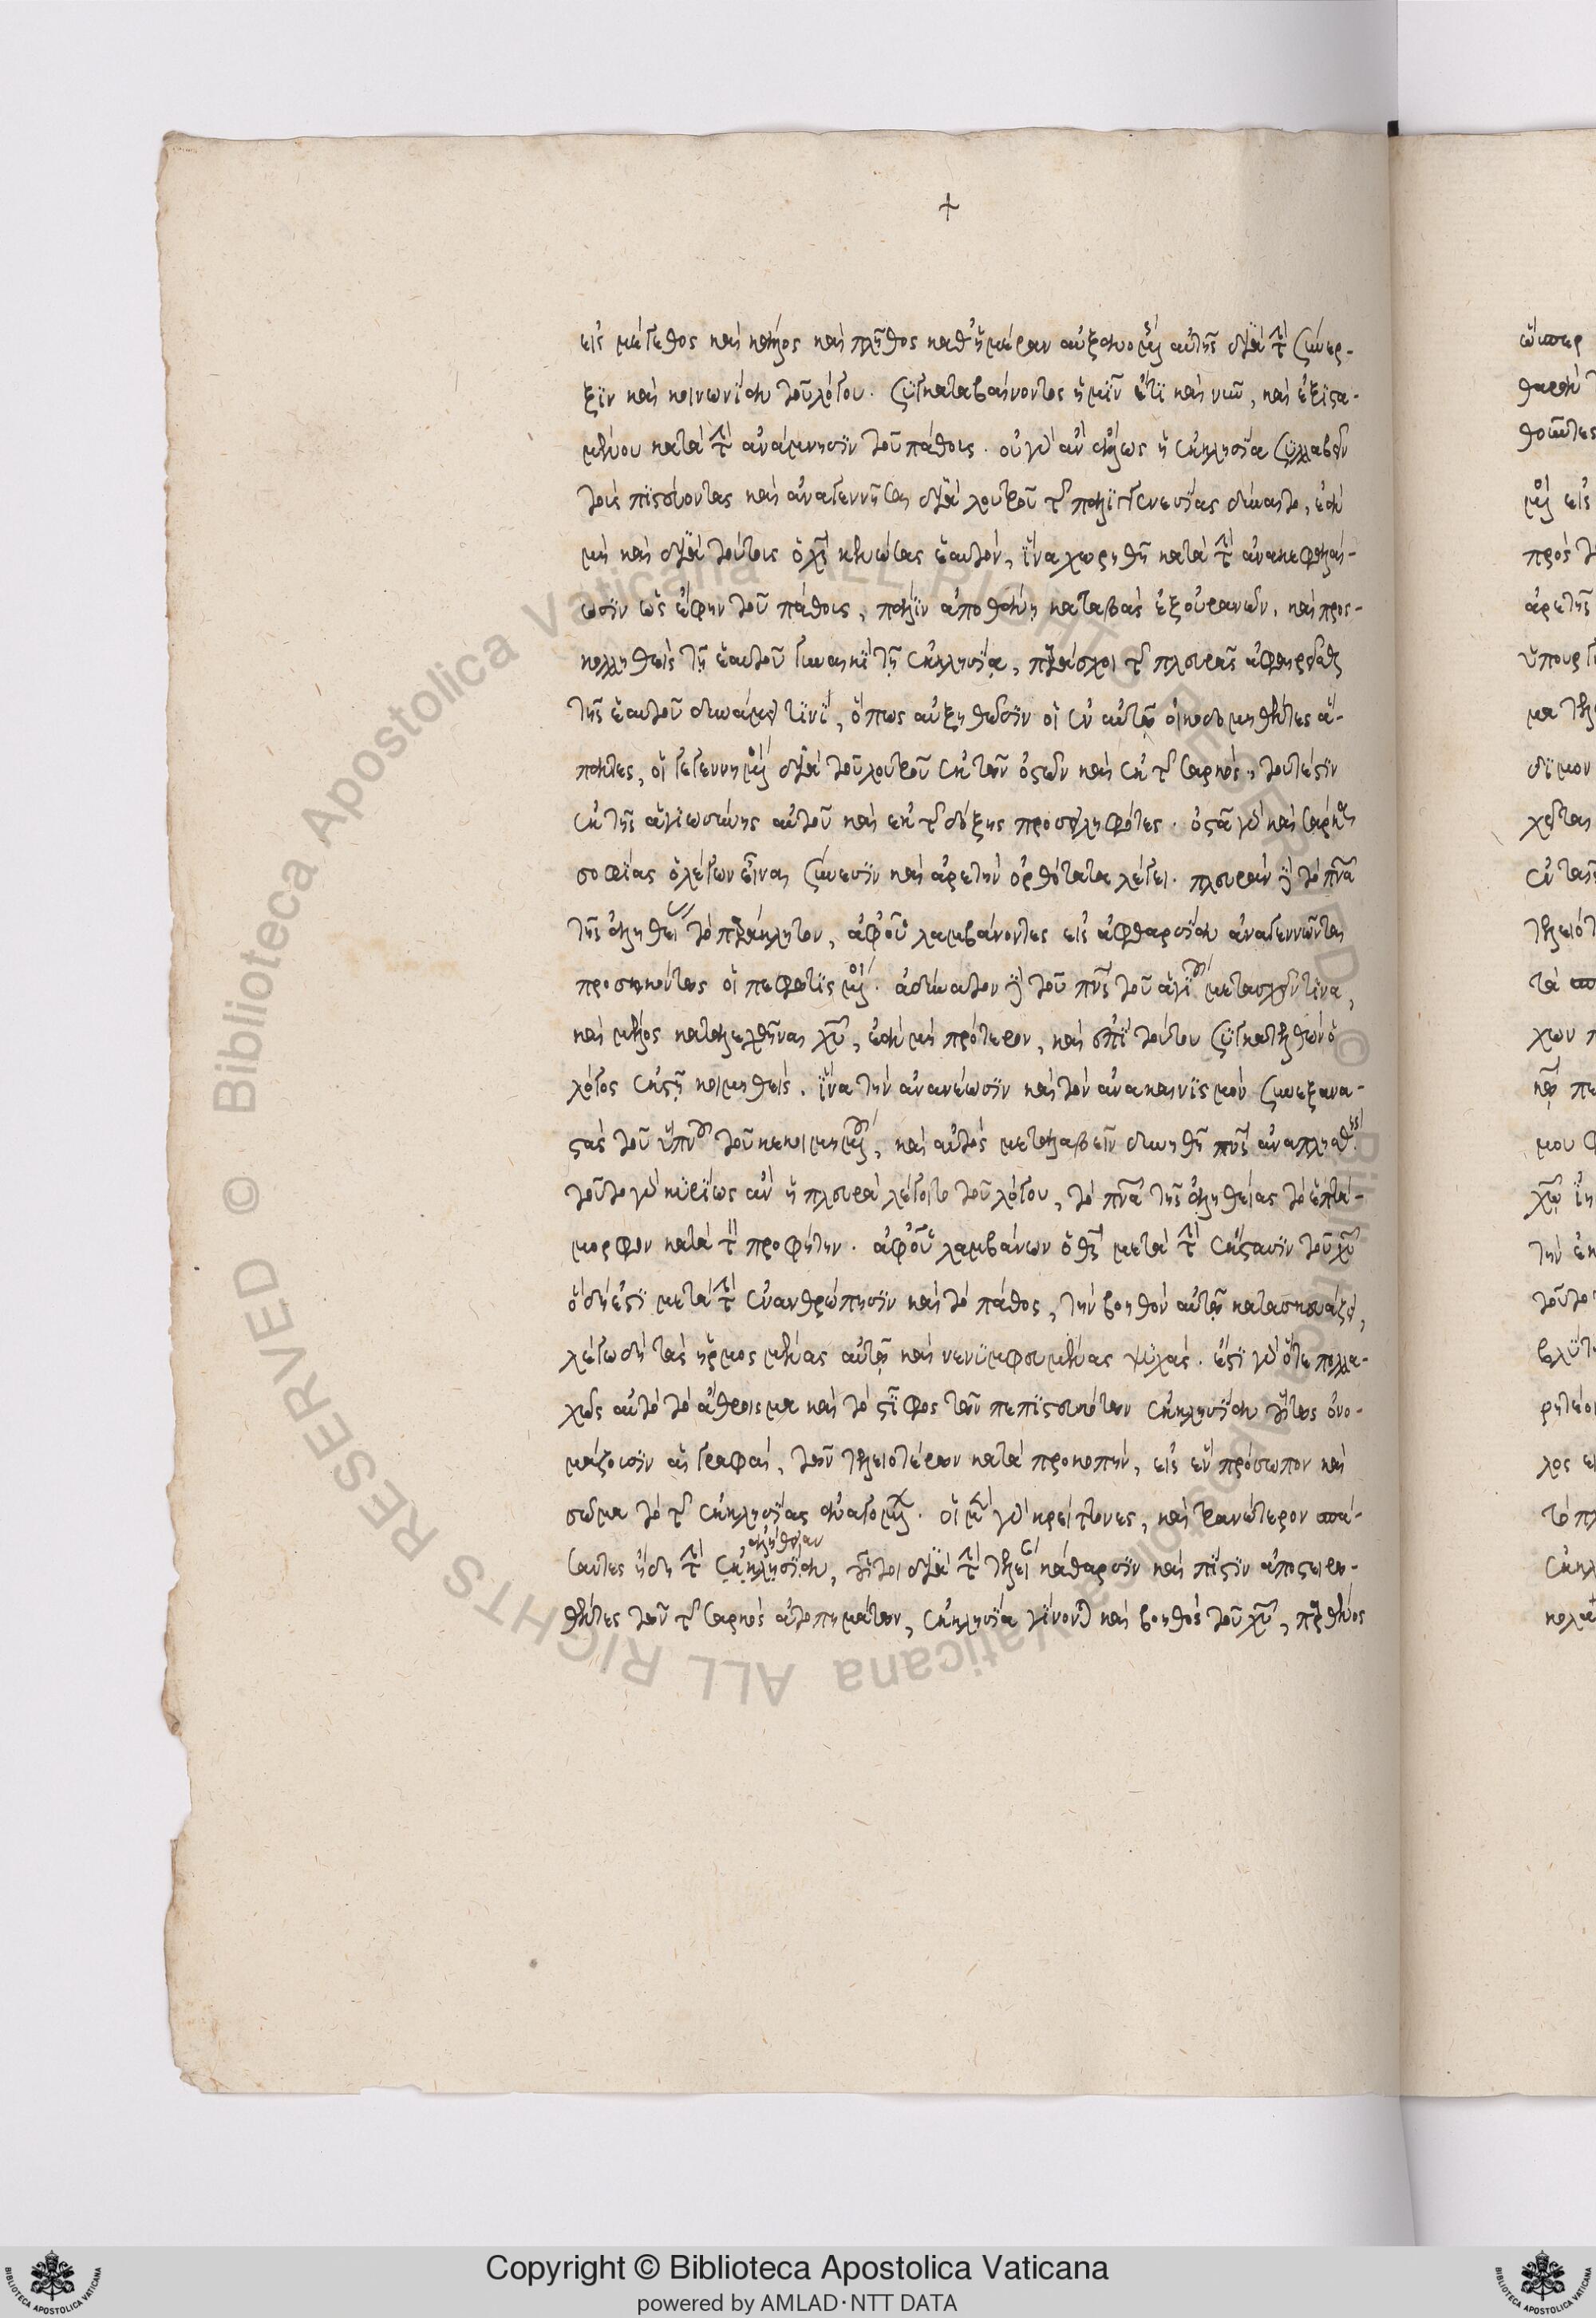 +
εἰς μέγεθος καὶ κάλλος καὶ πλῆθος καθ' ἡμέραν αὐξανομένης αὐτῆς διὰ τὴν σύνερ-
ξιν καὶ κοινωνίαν τοῦ λόγου. συγκαταβαίνοντος ἡμῖν ἔτι καὶ νῦν, καὶ ἐξιστα-
μένου κατὰ τὴν ἀνάμνησιν τοῦ πάθους. οὐ γὰρ ἂν ἄλλως ἡ ἐκκλησία συλλαβεῖν
τοὺς πιστεύοντας καὶ ἀναγεννῆσαι διὰ λουτροῦ τῆς παλιγγενεσίας δύναιτο, ἐὰν
μὴ καὶ διὰ τούτους ὁ χς κενώσας ἑαυτόν, ἵνα χωρηθῇ κατὰ τὴν ἀνακεφαλαί-
ωσιν ὡς ἔφην τοῦ πάθους, πάλιν ἀποθάνῃ καταβὰς ἐξ οὐρανῶν. καὶ προς-
κολληθεὶς τῇ ἑαυτοῦ γυναικὶ τῇ ἐκκλησίᾳ, παράσχοι τῆς πλευρᾶς ἀφαιρεῖσθαι
τῆς ἑαυτοῦ δύναμίν τινα, ὅπως αὐξηθῶσιν οἱ ἐν αὐτῷ οἰκοδομηθέντες ἅ-
παντες, οἱ γεγεννημένοι διὰ τοῦ λουτροῦ ἐκ τῶν ὀστῶν καὶ ἐκ τῆς σαρκός, τουτέστιν
ἐκ τῆς ἁγιωσύνης αὐτοῦ καὶ ἐκ τῆς δόξης προσειληφότες. ὀστᾶ γὰρ καὶ σάρκα
σοφίας ὁ λέγων εἶναι σύνεσιν καὶ ἀρετὴν ὀρθότατα λέγει. πλευρὰν δὲ τὸ πνα
τῆς ἀληθείας τὸ παράκλητον, ἀφ' οὗ λαμβάνοντες εἰς ἀφθαρσίαν ἀναγεννῶνται
προσηκόντως οἱ πεφωτισμένοι. ἀδύνατον δὲ τοῦ πνς τοῦ ἁγίου μετασχεῖν τινα,
καὶ μέλος καταλεχθῆναι χυ, ἐὰν μὴ πρότερον, καὶ ἐπὶ τούτου συγκατελθὼν ὁ
λόγος ἐκστῇ κοιμηθείς. ἵνα τὴν ἀνανέωσιν καὶ τὸν ἀνακαινισμὸν συνεξανα-
στὰς τοῦ ὕπνου τοῦ κεκοιμημένου, καὶ αὐτὸς μεταλαβεῖν δυνηθῇ πνς ἀναπλησθείς.
τοῦτο γὰρ κυρίως ἂν ἡ πλευρὰ λέγοιτο τοῦ λόγου, τὸ πνα τῆς ἀληθείας τὸ ἑπτά-
μορφον κατὰ τὸν προφήτην. ἀφ' οὗ λαμβάνων ὁ θς μετὰ τὴν ἔκστασιν τοῦ χυ
ὃ δή ἐστι μετὰ τὴν ἐνανθρώπησιν καὶ τὸ πάθος, τὴν βοηθὸν αὐτῷ κατασκευάζει,
λέγω δὴ τὰς ἡρμοσμένας αὐτῷ καὶ νενυμφευμένας ψυχάς. ἔστι γὰρ ὅτε πολλα-
χῶς αὐτὸ τὸ ἄθροισμα καὶ τὸ στῖφος τῶν πεπιστευκότων ἐκκλησίαν οὕτως ὀνο-
μάζουσιν αἱ γραφαί, τῶν τελειοτέρων κατὰ προκοπήν, εἰς ἓν πρόσωπον καὶ
σῶμα τὸ τῆς ἐκκλησίας ἀναγομένων. οἱ μὲν γὰρ κρείττονες, καὶ τρανώτερον σπά-
ἀλήθειαν
σαντες ἤδη τὴν ἐκκλησίαν, οὗτοι διὰ τὴν τελείαν κάθαρσιν καὶ πίστιν ἀποστειρω-
θέντες τῶν τῆς σαρκὸς ἀτοπημάτων, ἐκκλησία γίνονται καὶ βοηθὸς τοῦ χυ, παρθένος